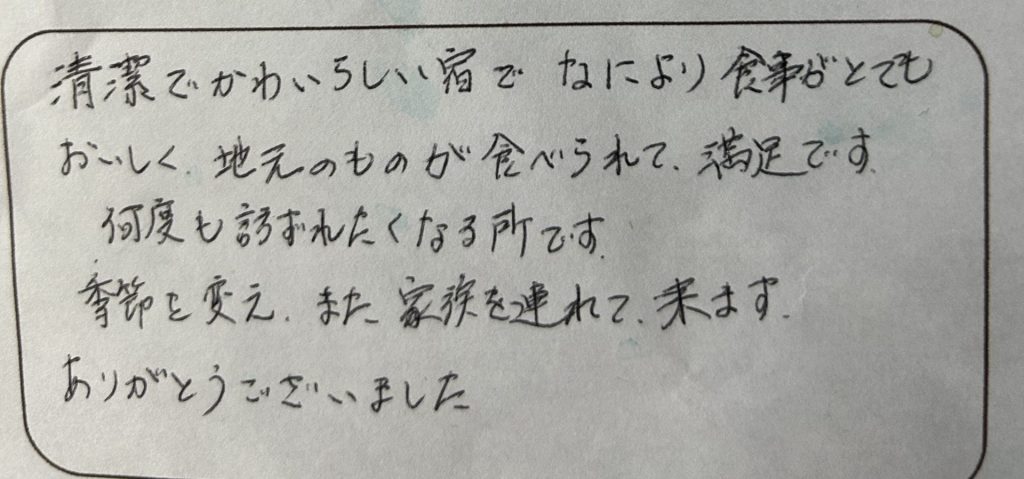 清潔でかわいらしい宿で なにより食事がとても
おいしく、地元のものが食べられて、満足です。
何度も訪ずれたくなる所です。
季節を変え、また家族を連れて、来ます。
ありがとうございました